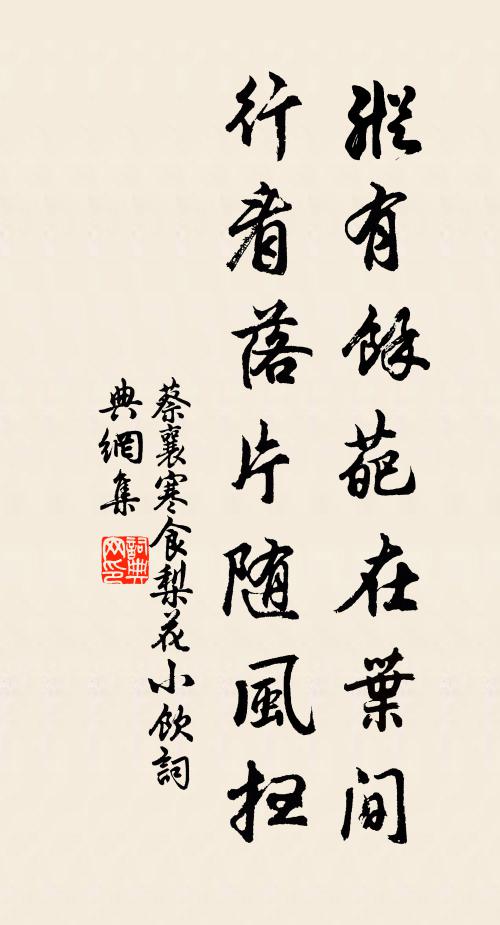 縱有餘葩在葉間
行看落片随風掃
蔡襄寒食梨花小飲詞
典網集
詞典
网印